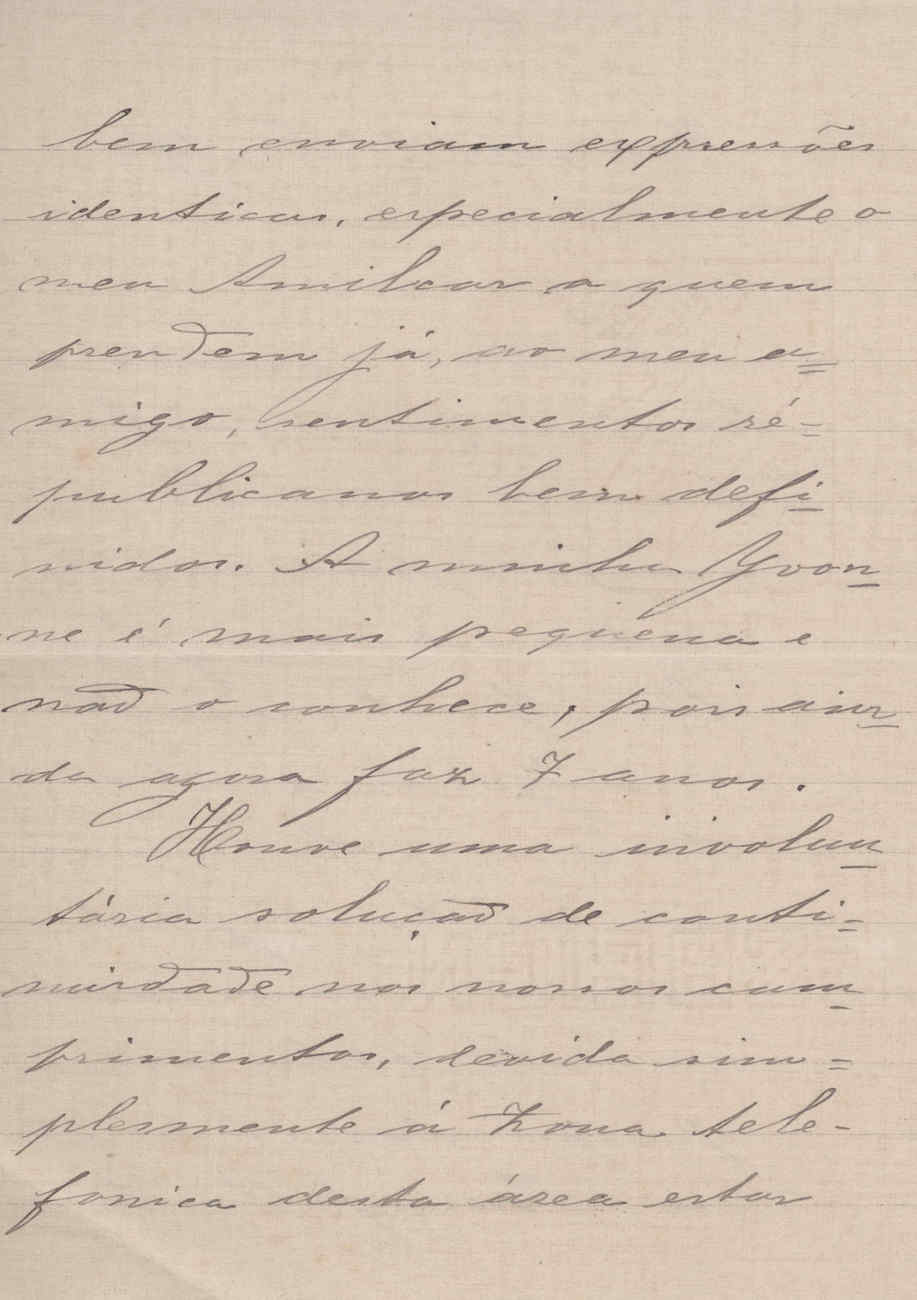 bem enviam expressões
identicas, especialmente o
meu Amilcar a quem
prendem já, ao meu a=
migo, sentimentos ré=
publicanos bem defi-
nidos. A minha Yvon-
ne é mais pequena e
naõ o conhece, pois ain-
da agora faz 7 anos.
Houve uma involun-
tária soluçaõ de conti=
nuidade nos nossos cum-
primentos, devida sim=
plesmente á zona tele-
fonica desta área estar